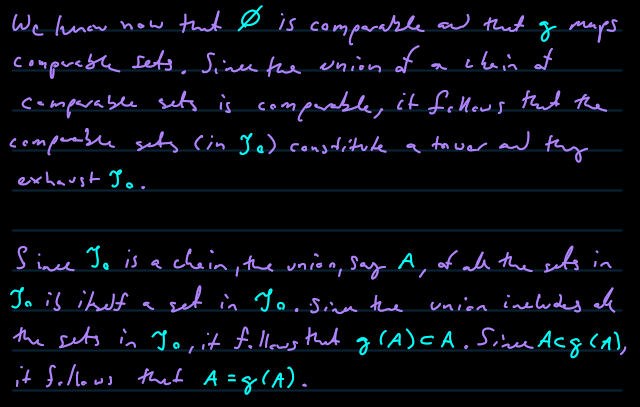 We know now that ∅ is comparable and that g maps
comparable sets. Since the union of a chain of
comparable sets is comparable, it follows that the
comparable sets (in 𝒥₀) constitute a tower and they
exhaust 𝒥₀.
Since 𝒥₀ is a chain, the union, say A, of all the sets in
𝒥₀ is itself a set in 𝒥₀. Since the union includes all
the sets in 𝒥₀, it follows that g(A)⊂A. Since A⊂g(A),
it follows that A = g(A).